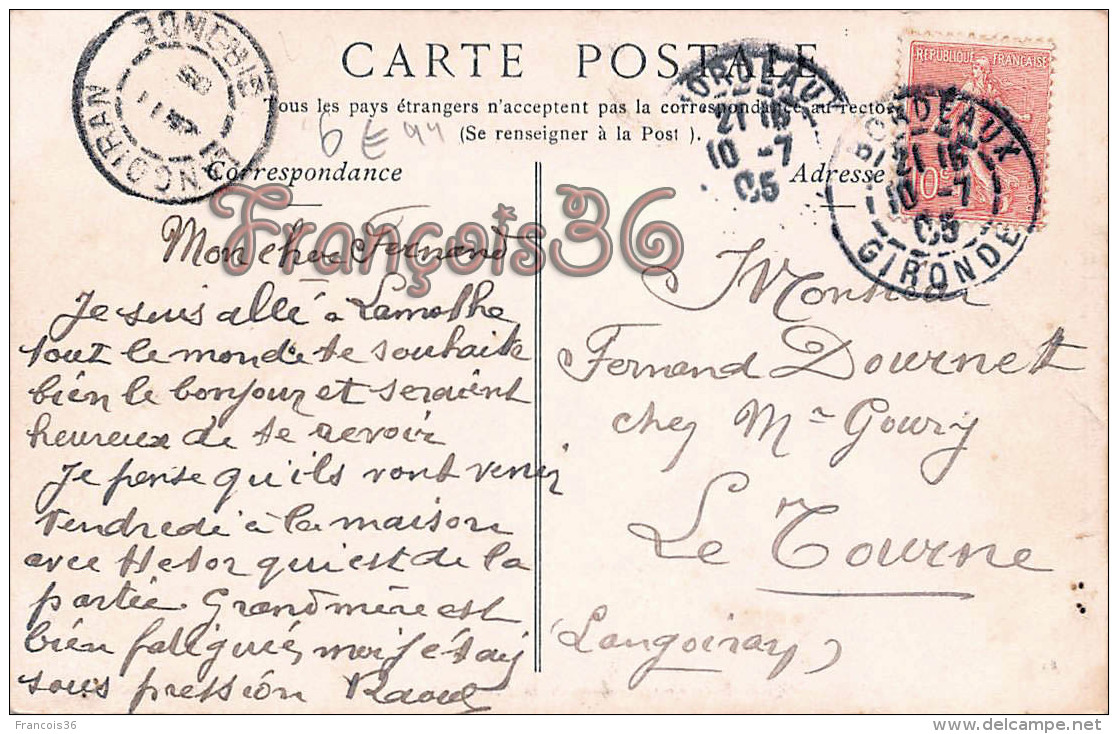 CARTE POSTALE
Tous les pays étrangers n'acceptent pas la correspondance au recto
(Se renseigner à la Post ).
6 E 94
Correspondance
Adresse
François36
Mon cher Fernand
Je suis allé à Lamothe
tout le monde te souhaite
bien le bonjour et seraient
heureux de te revoir
Je pense qu'ils vont venir
Vendredi à la maison
avec Hetor qui est de la
partie. Grand mère est
bien fatiguée, moi j'étais
sous pression Raoul
Monsieur
Fernand Dournett
chez Mr Goury
Le Tourne
(Langoiran)
REPUBLIQUE FRANÇAISE
10c
BORDEAUX
21 15
10 -7
05
BORDEAUX
21 15
10 -7
05
GIRONDE
LANGOIRAN
GIRONDE
François36
delcampe.net